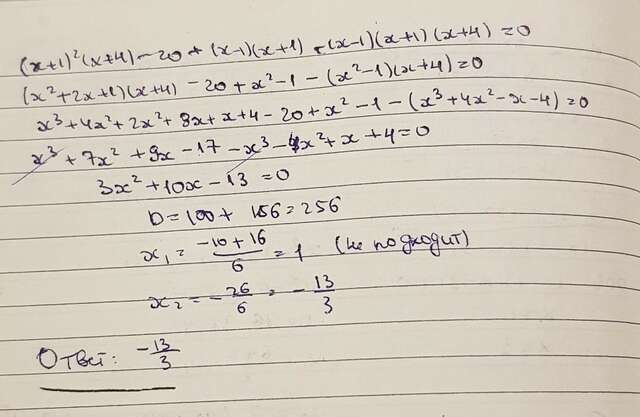 (x+1)²(x+4) - 20 + (x-1)(x+1) - (x-1)(x+1)(x+4) = 0
(x²+2x+1)(x+4) - 20 + x² - 1 - (x²-1)(x+4) = 0
x³ + 4x² + 2x² + 8x + x + 4 - 20 + x² - 1 - (x³ + 4x² - x - 4) = 0
x³ + 7x² + 9x - 17 - x³ - 4x² + x + 4 = 0
3x² + 10x - 13 = 0
D = 100 + 156 = 256
x₁ = (-10 + 16)/6 = 1 (не подходит)
x₂ = -26/6 = -13/3
Ответ: -13/3